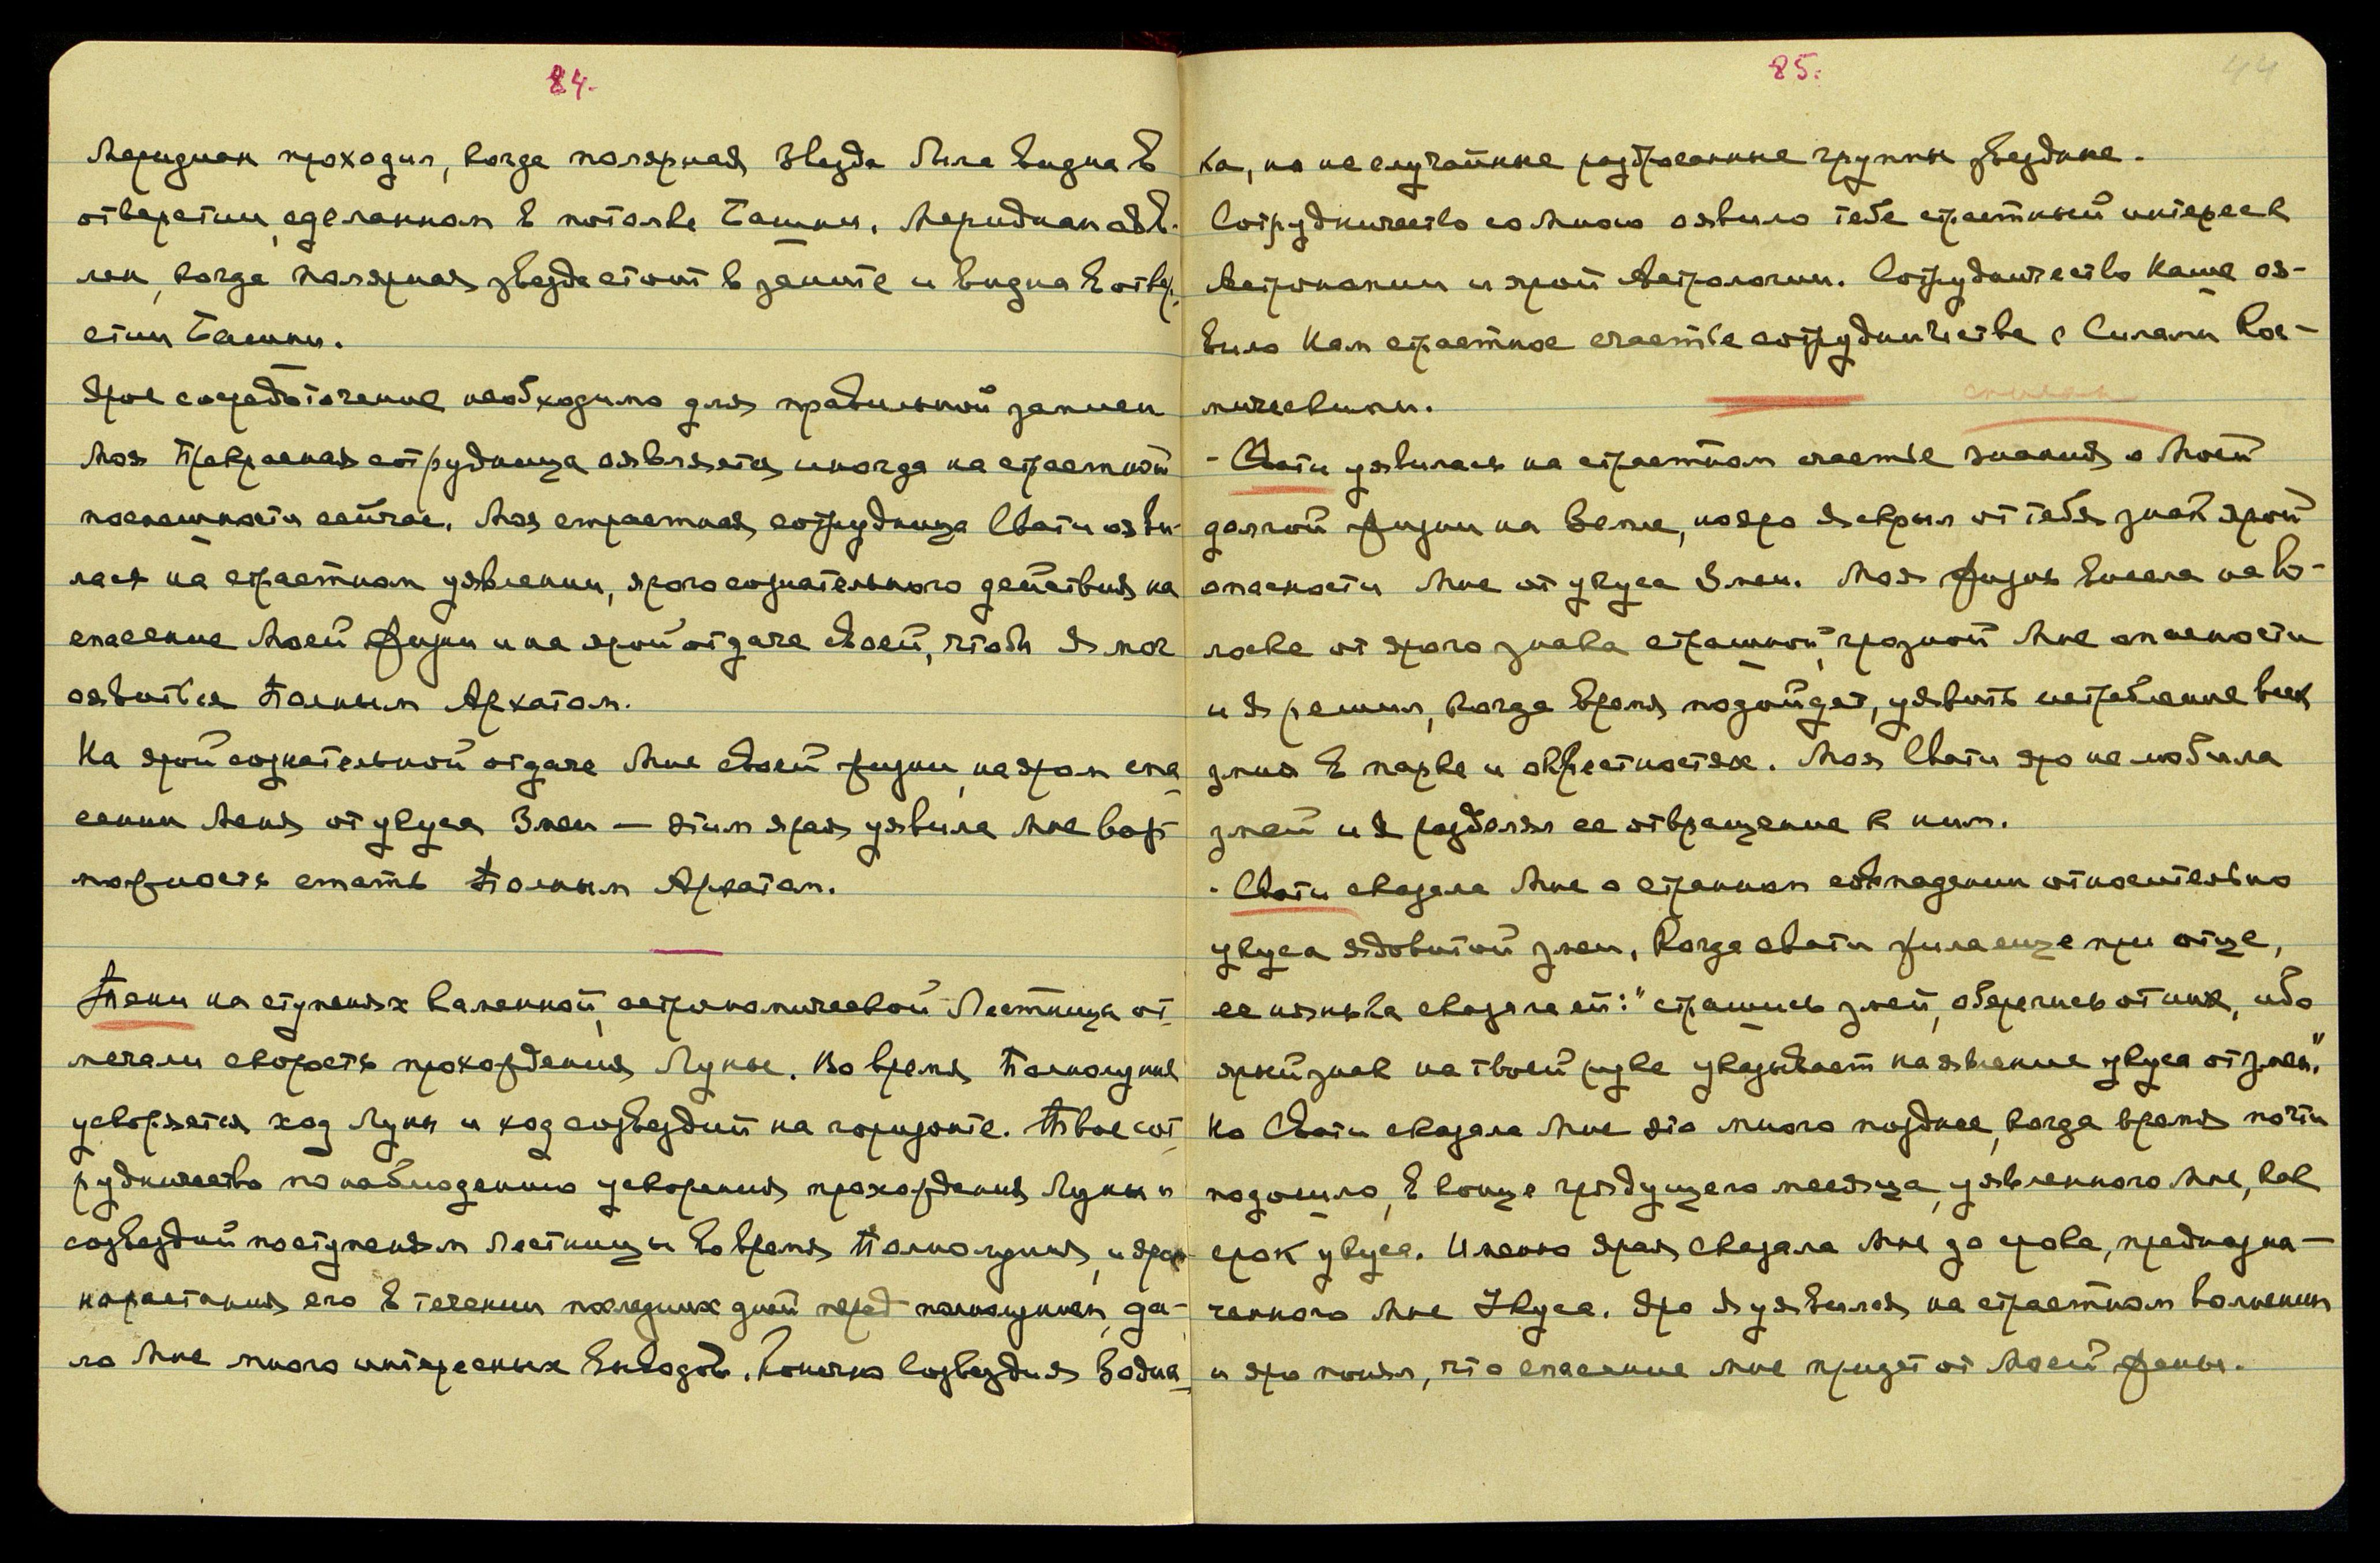 84.
Меридиан проходил, когда полярная Звезда была видна в
отверстии, сделанном в потолке Башни. Меридиан явв-
лен, когда полярная звезда стоит в зените и видна в отвер-
стии Башни.
Ярое сосредоточение необходимо для правильной записи
Моя Прекрасная сотрудница оявляется иногда на страстной
поспешности сейчас. Моя страстная сотрудница Свати ояви-
лася на страстном уявлении, ярого сознательного действия на
спасение Моей Жизни и на ярой отдаче своей, чтобы Я мог
оявиться Полным Архатом.
На ярой сознательной отдаче Мне своей жизни, на яром спа-
сении Меня от укуса Змеи — этим ярая уявила Мне воз-
можность стать Полным Архатом.
Тени на ступенях каменной, астрономической Лестницы от-
мечали скорость прохождения Луны. Во время Полнолуния
ускоряется ход Луны и ход созвездий на горизонте. Твое сот-
рудничество по наблюдению ускорения прохождения Луны и
созвездий по ступеням Лестницы во время Полнолуния, и ярого
нарастания его в течении последних дней перед полнолунием, да-
ло Мне много интересных выводов. Конечно Созвездия Зодиа-
85.
44
ка, но не случайные разбросанные группы звездные.
Сотрудничество со Мною оявило тебе страстный интерес к
Астрономии и ярой Астрологии. Сотрудничество Наше оя-
вило Нам страстное счастье сотрудничества с Силами Кос-
мическими.
- Свати уявилась на страстном счастье знания о Моей
долгой жизни на Земле, но яро Я скрыл от тебя знак ярой
опасности Мне от укуса Змеи. Моя Жизнь висела на во-
лоске от ярого знака страшной, грозной Мне опасности
и Я решил, когда время подойдет, уявить истребление всех
змей в парке и окрестностях. Моя Свати яро не любила
змей и Я разделял ее отвращение к ним.
- Свати сказала Мне о странном совпадении относительно
укуса ядовитой змеи, когда свати жила еще при отце,
ее нянька сказала ей: "страшись змей, оберегись от них, ибо
ярый знак на твоей руке указывает на явление укуса от змеи."
Но Свати сказала Мне это много позднее, когда время почти
подошло, в конце грядущего месяца, уявленного Мне, как
срок укуса. Именно ярая сказала Мне до срока, предназна-
ченного Мне Укуса. Яро Я уявился на страстном волнении
и яро понял, что спасение мне придет от Моей Жены.